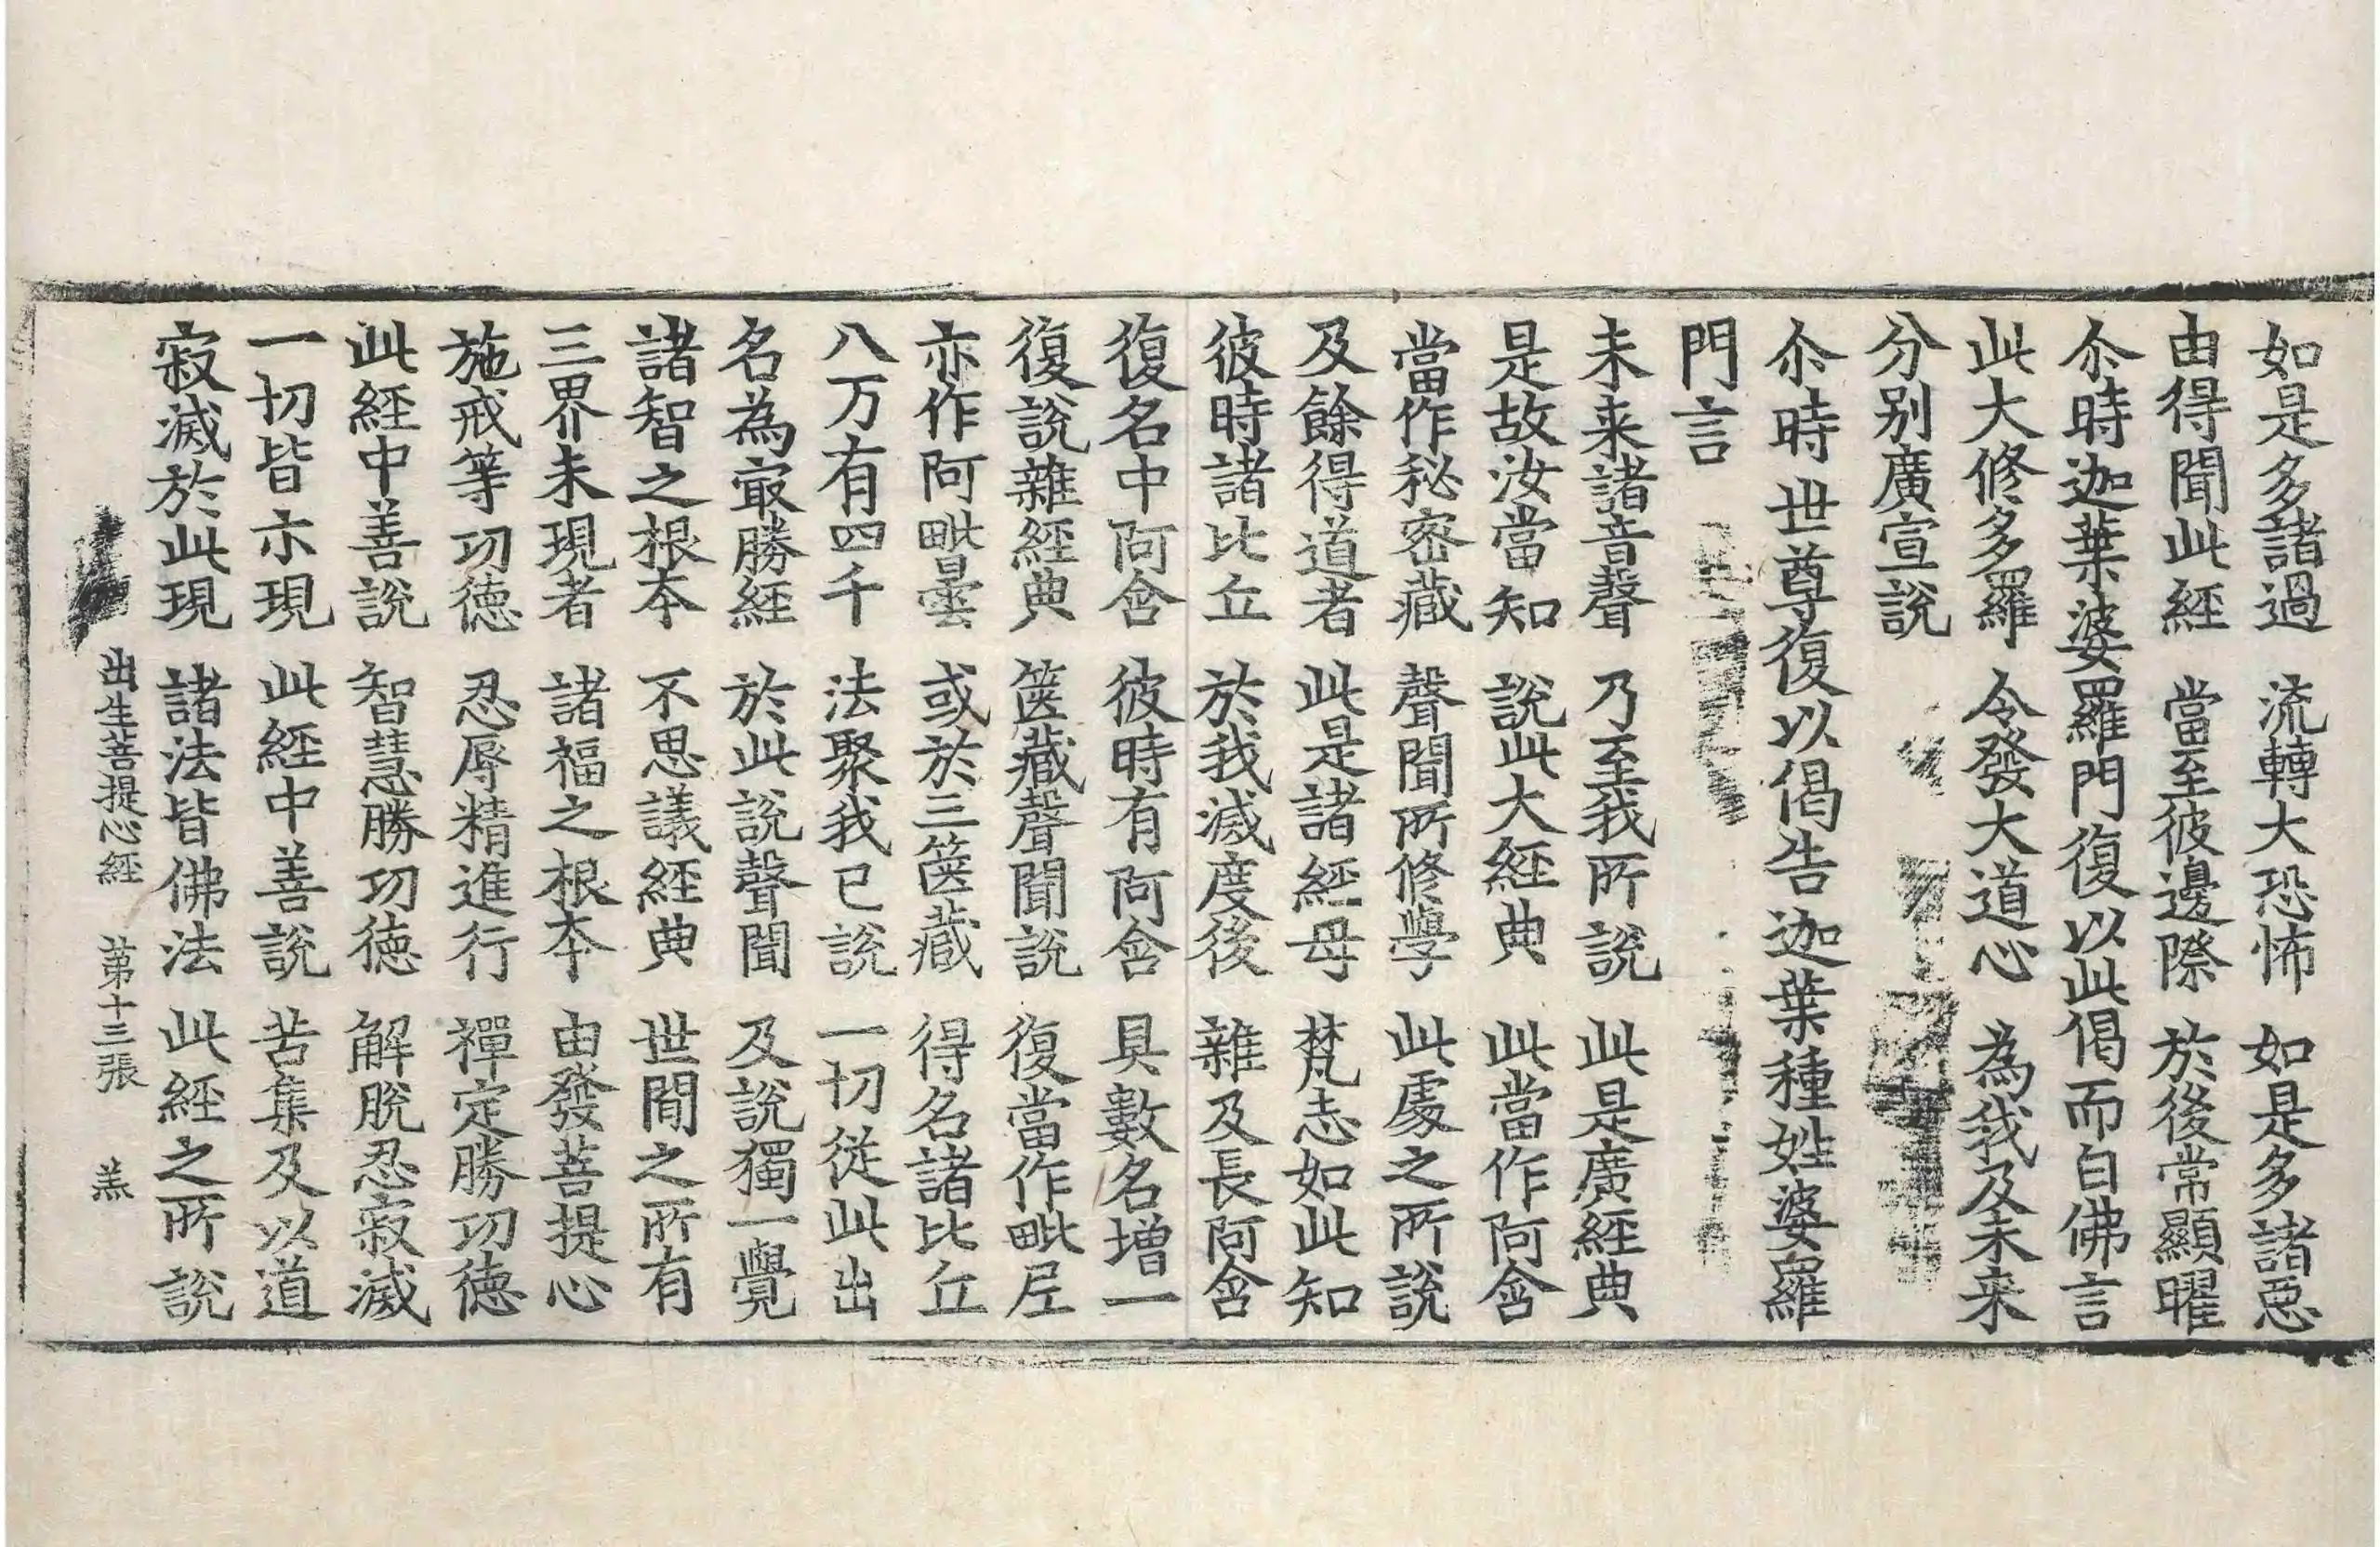 如是多諸過　流轉大恐怖　如是多諸惡
由得聞此經　當至彼邊際　於後常顯曜
尒時迦葉婆羅門復以此偈而白佛言
此大修多羅　令發大道心　為我及未来
分别廣宣說
尒時世尊復以偈告迦葉種姓婆羅
門言
未来諸音聲　乃至我所說　此是廣經典
是故汝當知　說此大經典　此當作阿含
當作秘密藏　聲聞所修學　此處之所說
及餘得道者　此是諸經母　梵志如此知
彼時諸比丘　於我滅度後　雜及長阿含
復名中阿含　彼時有阿含　具數名增一
復說雜經典　篋藏聲聞說　復當作毗尼
亦作阿毗曇　或於三篋藏　得名諸比丘
八万有四千　法聚我已說　一切從此出
名為冣勝經　於此說聲聞　及說獨一覺
諸智之根本　不思議經典　世間之所有
三界未現者　諸福之根本　由發菩提心
施戒等功德　忍辱精進行　禪定勝功德
此經中善說　智慧勝功德　解脫忍寂滅
一切皆示現　此經中善說　苦集及以道
寂滅於此現　諸法皆佛法　此經之所說
出生菩提心經　苐十三張　羔